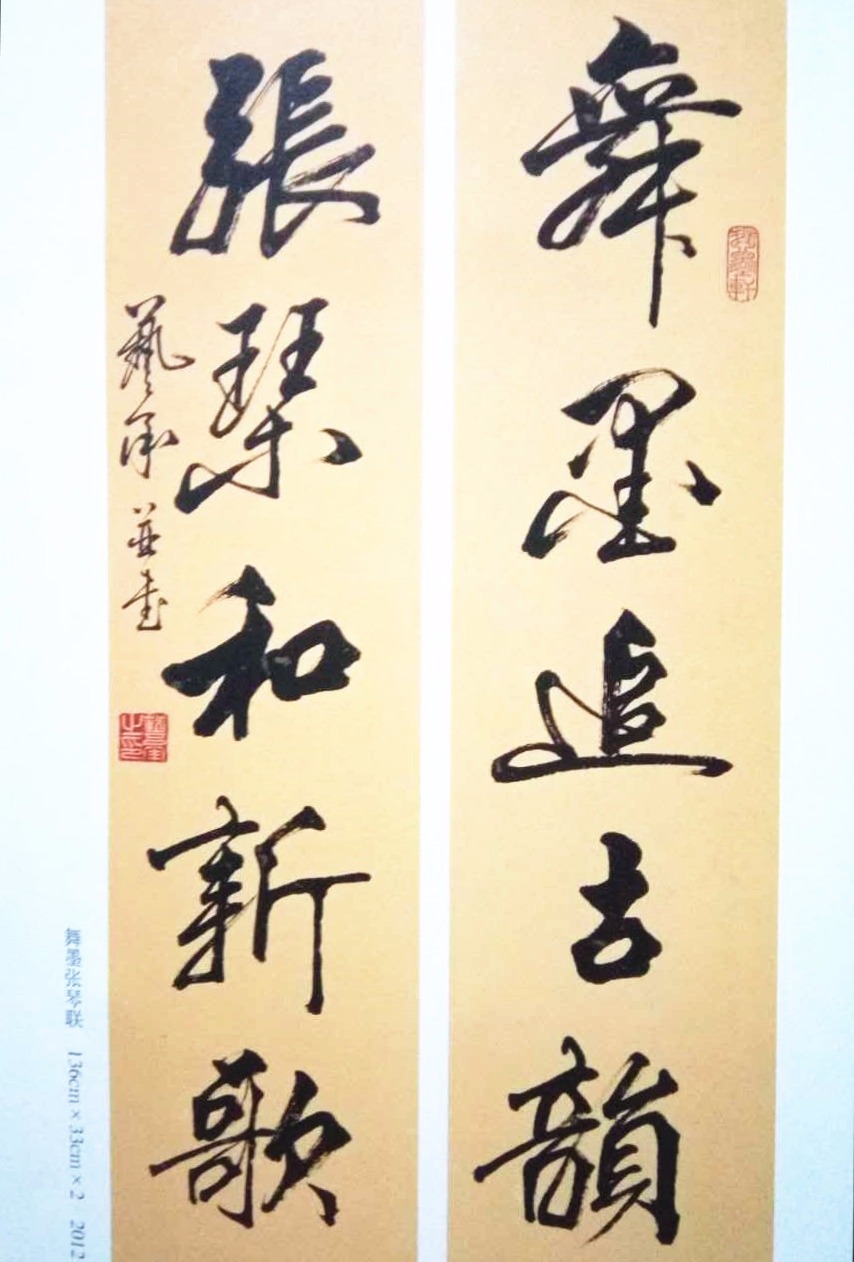 舞墨追古韻
張琴和新歌
藝承並書
舞墨张琴联 136cm×33cm×2 2012